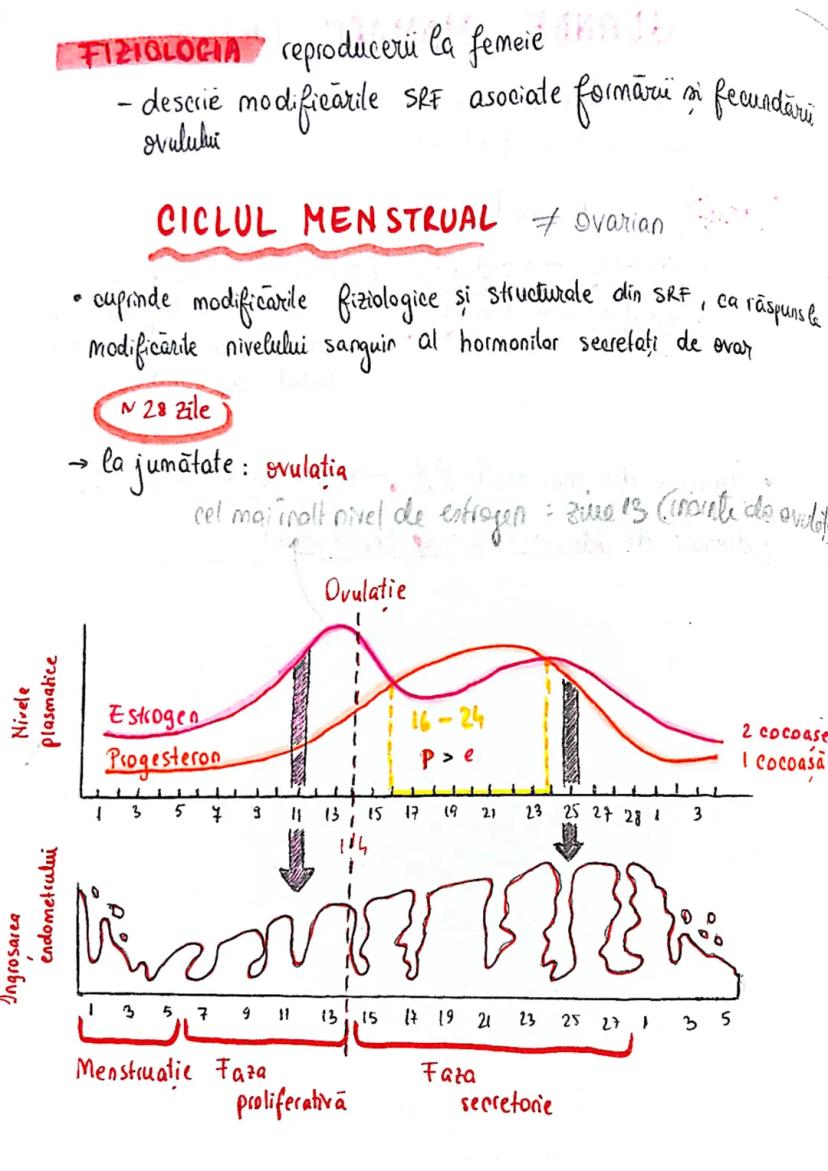 FIZIOLOGIA reproducerii la femeie
- descrie modificările SRF asociate formării și fecundării
ovulului
CICLUL MENSTRUAL ≠ ovarian
• cuprinde modificările fiziologice și structurale din SRF, ca răspuns la
modificările nivelului sanguin al hormonilor secretați de ovar
~ 28 zile
→ la jumătate: ovulația
cel mai înalt nivel de estrogen = ziua 13 (înainte de
Ovulație
Nivele
plasmatice
Estrogen
Progesteron
16 - 24
p > e
2 cocoașe
1 cocoașă
1 3 5 7 9 11 13 15 17 19 21 23 25 27 28 1 3
14
Îngroșarea
endometrului
1 3 5 7 9 11 13 15 17 19 21 23 25 27 1 3 5
Menstruație Faza Faza
proliferativă secretorie